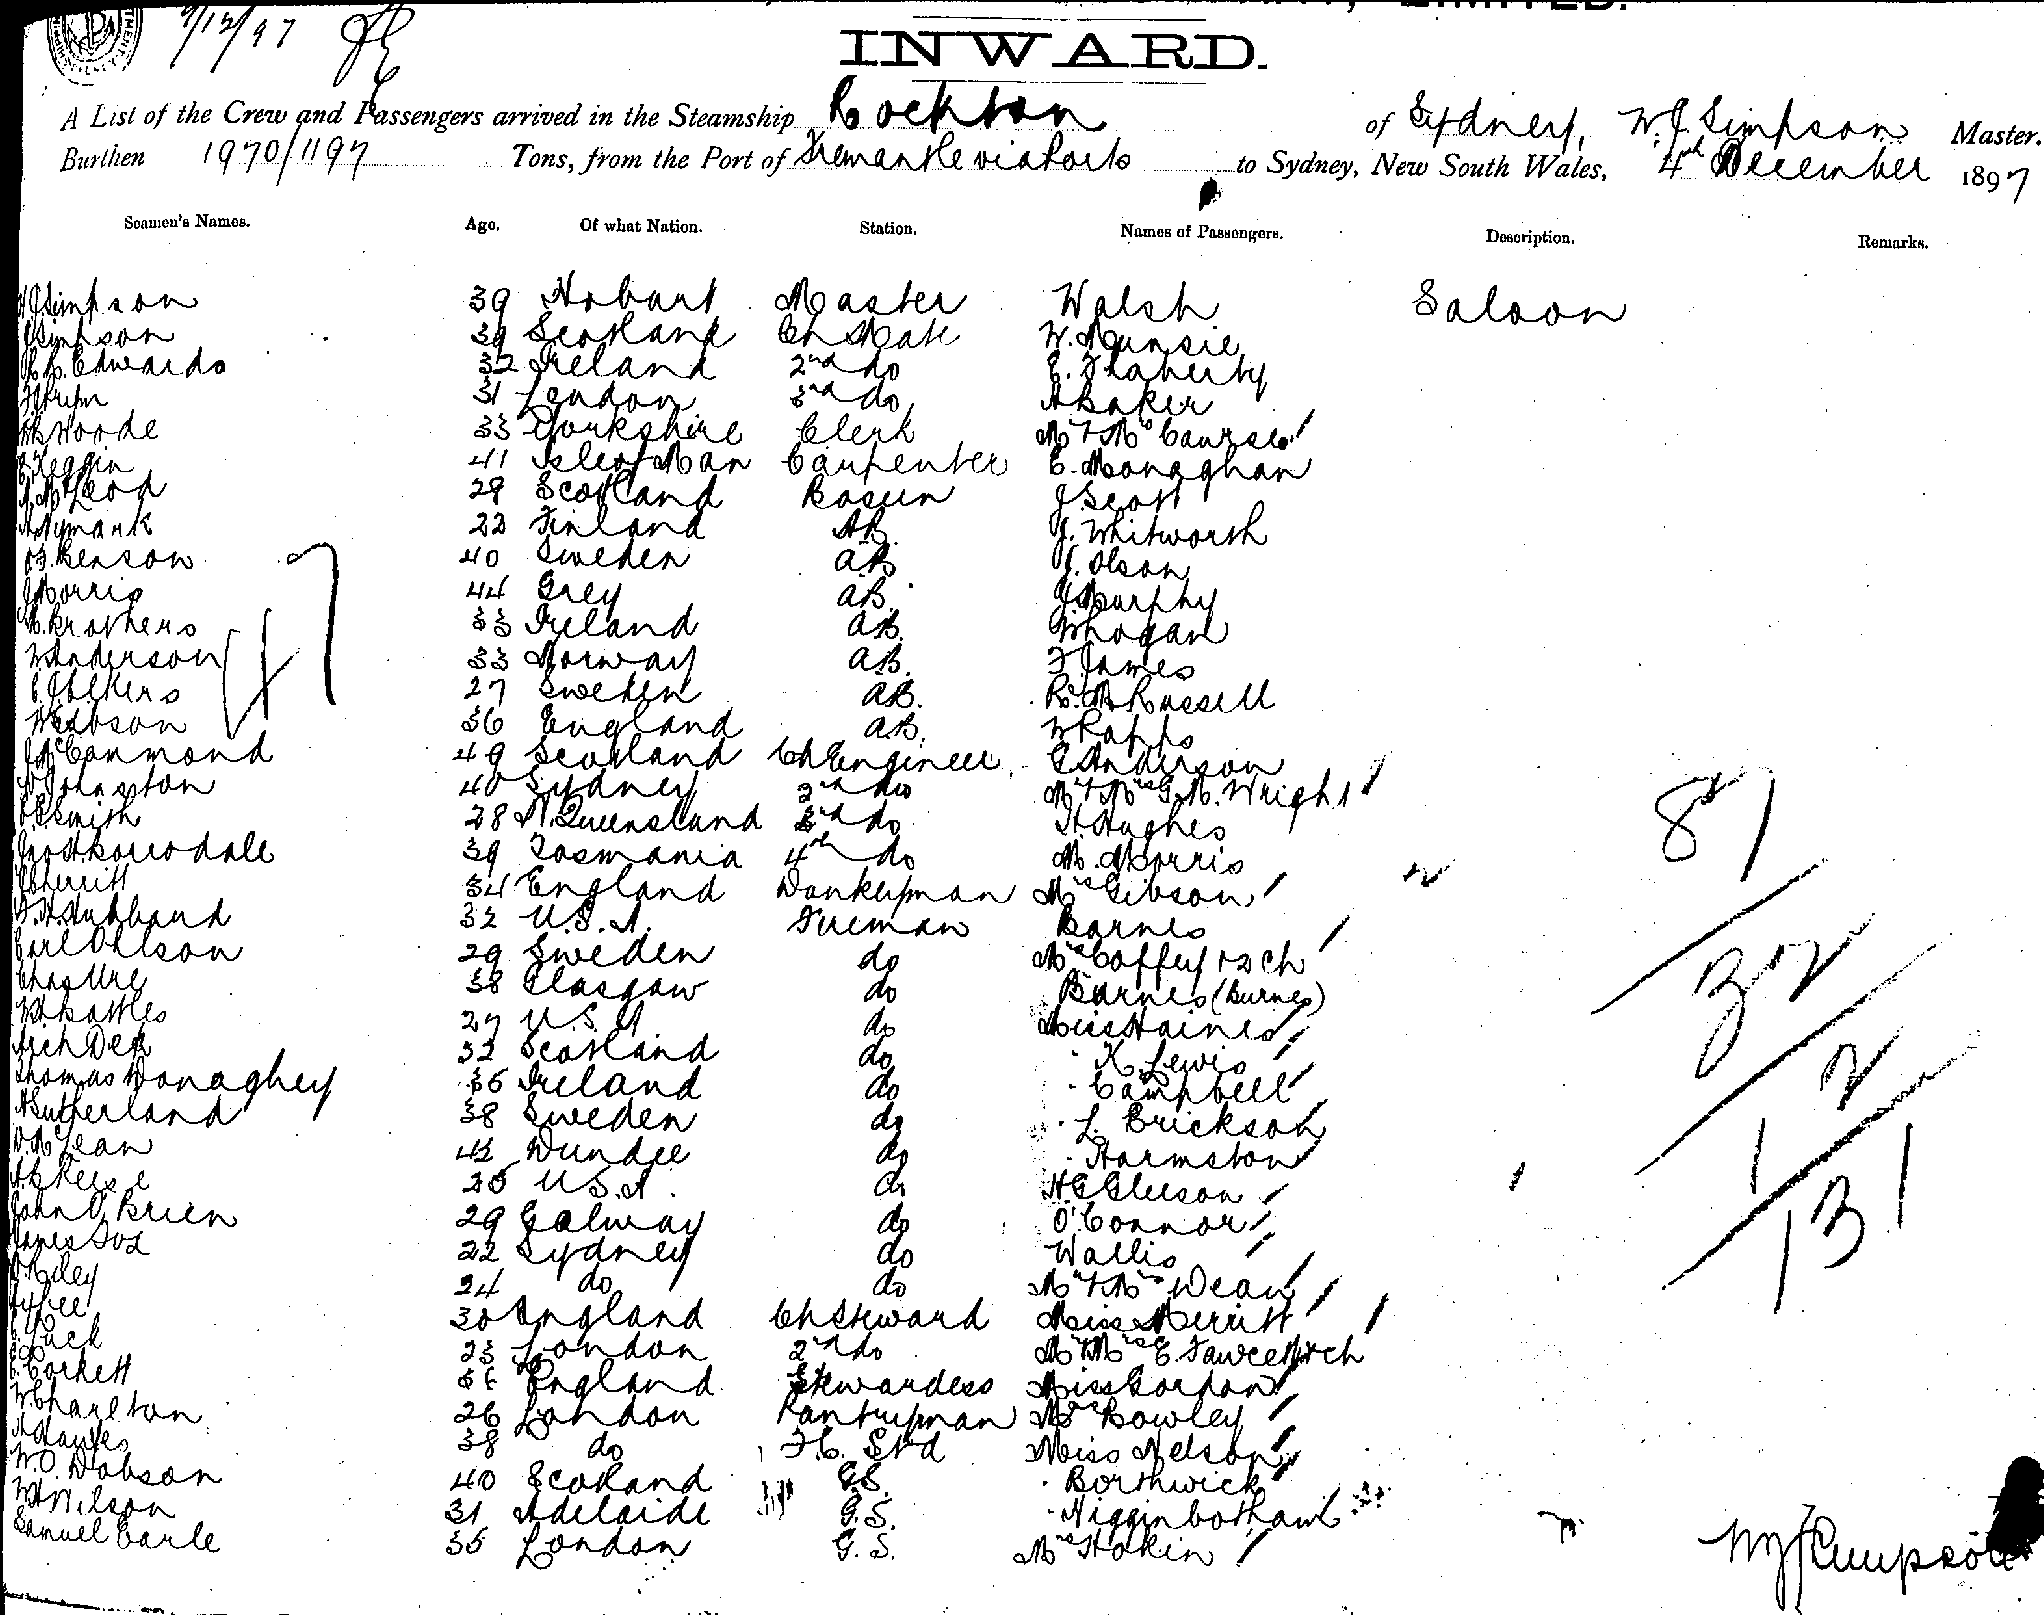 9/12/97
INWARD.
A List of the Crew and Passengers arrived in the Steamship Rockton of Sydney, W. J. Simpson Master.
Burthen 1970/1197 Tons, from the Port of Fremantle via Ports to Sydney, New South Wales, 4th December 1897
Seamen's Names. Age. Of what Nation. Station. Names of Passengers. Description. Remarks.
Simpson 39 Hobart Master Walsh Saloon
Simpson 39 Scotland Ch Mate W. Munsie
Edwards 32 Ireland 2nd do E. Flaherty
31 London 3rd do A Baker
Woode 33 Yorkshire Clerk Mr & Mrs
Keggin 41 Isle of Man Carpenter E. Monaghan
McLeod 29 Scotland Bosun J. Scott
Nymark 22 Finland AB. J. Whitworth
Benson 40 Sweden AB J. Olson
J Morris 44 Grey AB. J Murphy
Brothers 33 Ireland AB. W Hogan
W Anderson 33 Norway AB. F. James
27 Sweden AB. R. M Russell
W Gibson 36 England AB. W Rapps
49 Scotland Ch Engineer E Anderson
Johnston 40 Sydney 2nd do Mr & Mrs G. M. Wright
Smith 28 N. Queensland 3rd do H Hughes
39 Tasmania 4th do M. Morris
Sherritt 34 England Donkeyman Mrs Gibson
Husband 32 U.S.A. Fireman Barnes
Carl Ohlson 29 Sweden do Mrs Coffey & 2 ch
Chas Ure 38 Glasgow do Barnes (Burnes)
Battles 27 U.S.A do Miss Haines
32 Scotland do K. Lewis
Thomas Donaghey 36 Ireland do Campbell
Sutherland 38 Sweden do L. Erickson
McLean 42 Dundee do Harmston
25 U.S.A. do H G Gleeson
John O'Brien 29 Galway do O'Connor
James Fox 22 Sydney do Wallis
Riley 24 do do Mr & Mrs Dean
Lee 30 England Ch Steward Miss Merritt
23 London 2nd do Mr Mrs E. Fawcett & ch
Corkett England Stewardess Miss Gordon
W. Charlton 26 London Pantryman Mrs Bowley
Hawkes 38 do F. C. Std Miss Nelson
W. O. Dobson 40 Scotland G.S. Borthwick
Wilson 31 Adelaide G.S. Higginbotham
Samuel Earle 35 London G.S. Mrs Hokin
47
87
32
12
131
W J Simpson